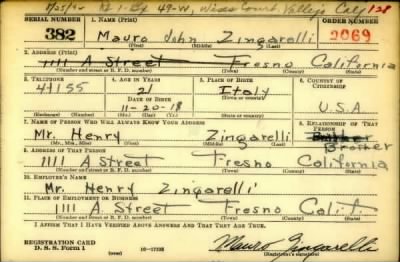 Wins Court, Vallejo, Cal
SERIAL NUMBER 1. NAME (Print) ORDER NUMBER
382 Mauro John Zingarelli 2069
(First) (Middle) (Last)
2. ADDRESS (Print)
1111 A Street Fresno California
(Number and street or R. F. D. number) (Town) (County) (State)
3. TELEPHONE 4. AGE IN YEARS 5. PLACE OF BIRTH 6. COUNTRY OF CITIZENSHIP
41155 21 Italy
DATE OF BIRTH (Town or county)
11-20-18 U.S.A
(Exchange) (Number) (Mo.) (Day) (Yr.) (State or country)
7. NAME OF PERSON WHO WILL ALWAYS KNOW YOUR ADDRESS 8. RELATIONSHIP OF THAT PERSON
Mr. Henry Zingarelli Brother
(Mr., Mrs., Miss) (First) (Middle) (Last)
9. ADDRESS OF THAT PERSON
1111 A Street Fresno California
(Number and street or R. F. D. number) (Town) (County) (State)
10. EMPLOYER'S NAME
Mr. Henry Zingarelli
11. PLACE OF EMPLOYMENT OR BUSINESS
1111 A Street Fresno Calif.
(Number and street or R. F. D. number) (Town) (County) (State)
I AFFIRM THAT I HAVE VERIFIED ABOVE ANSWERS AND THAT THEY ARE TRUE.
REGISTRATION CARD
D. S. S. Form 1 16-17105 Mauro Zingarelli
(Registrant's signature)